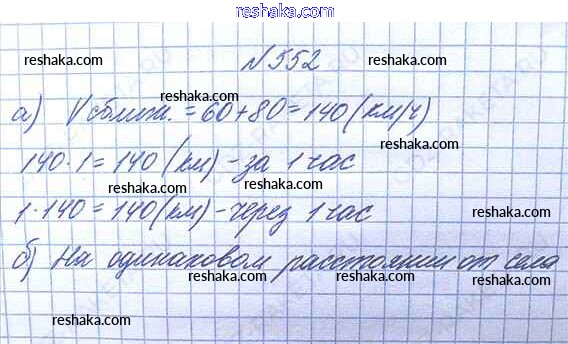 reshaka.com
№552
reshaka.com reshaka.com
а) Vсближ. = 60+80=140 (км/ч)
reshaka.com reshaka.com
140·1=140 (км) - за 1 час
reshaka.com reshaka.com reshaka.com
1·140=140 (км) - через 1 час
reshaka.com reshaka.com
б) На одинаковом расстоянии от села
reshaka.com reshaka.com reshaka.com
reshaka.com reshaka.com